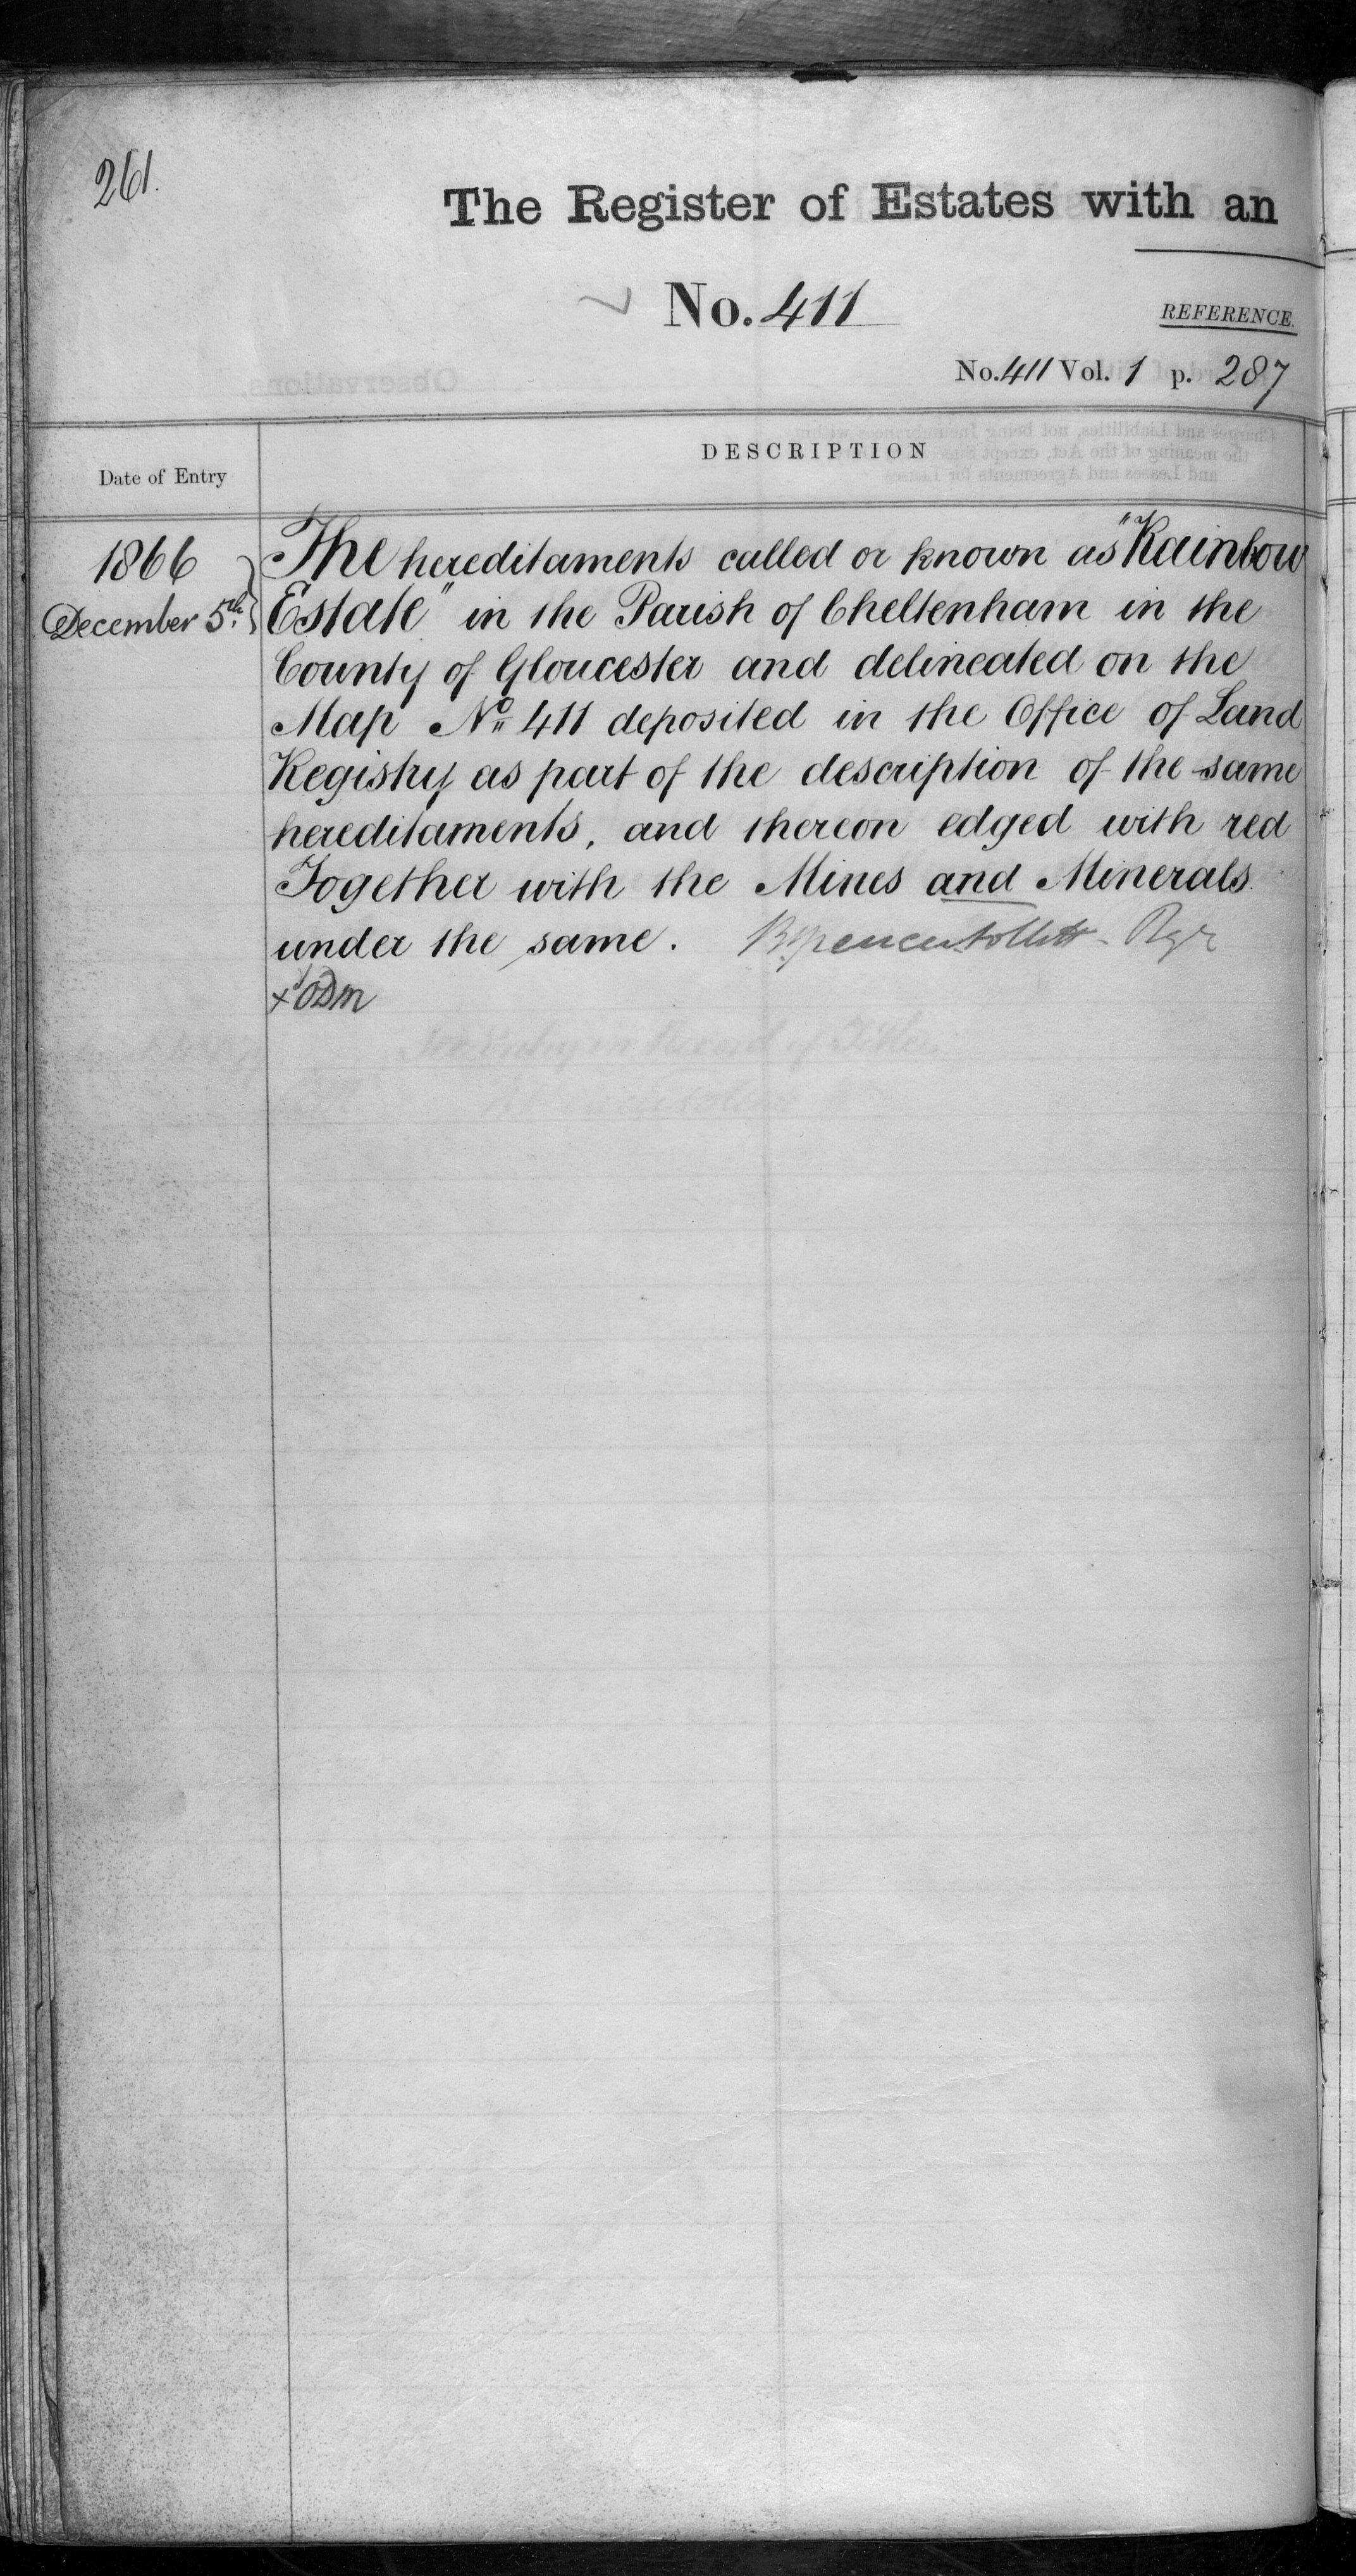 261.
The Register of Estates with an
No. 411
REFERENCE.
No. 411 Vol. 1 p. 287
Date of Entry
DESCRIPTION
1866
December 5th.
The hereditaments called or known as "Rainbow
Estate" in the Parish of Cheltenham in the
County of Gloucester and delineated on the
Map No. 411 deposited in the Office of Land
Registry as part of the description of the same
hereditaments, and thereon edged with red
Together with the Mines and Minerals
under the same. B. Spencer Follett - Rgr